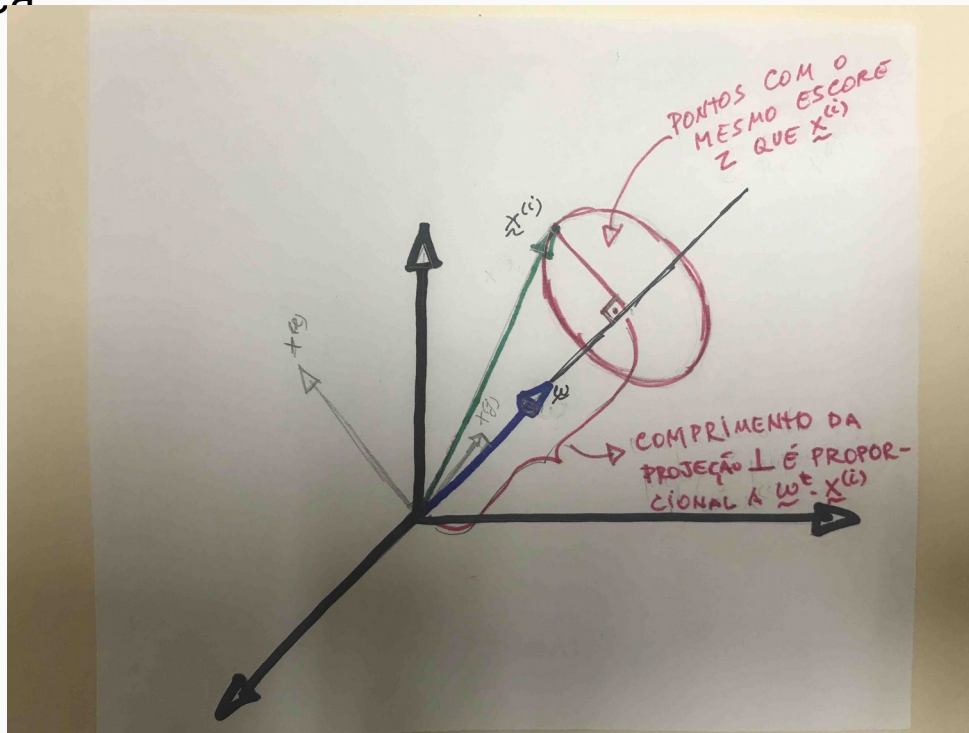 PONTOS COM O
MESMO ESCORE
Z QUE x^(i)
x^(i)
w
COMPRIMENTO DA
PROJEÇÃO ⊥ É PROPOR-
CIONAL A w^t · x^(i)